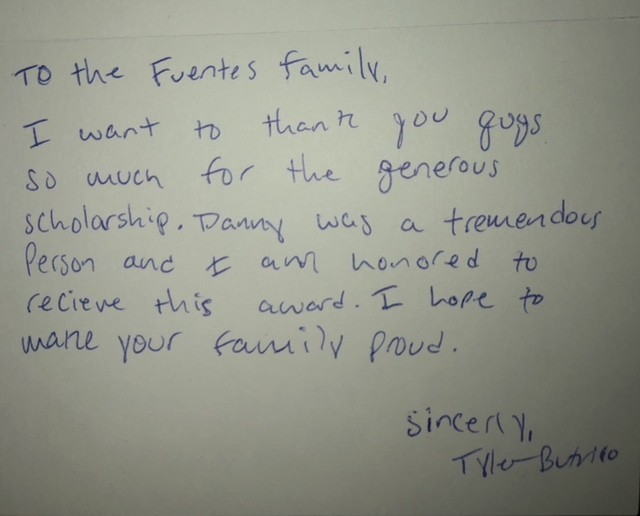 To the Fuentes family,
I want to thank you guys
so much for the generous
scholarship. Danny was a tremendous
Person and I am honored to
recieve this award. I hope to
make your family proud.
sincerly,
Tyler